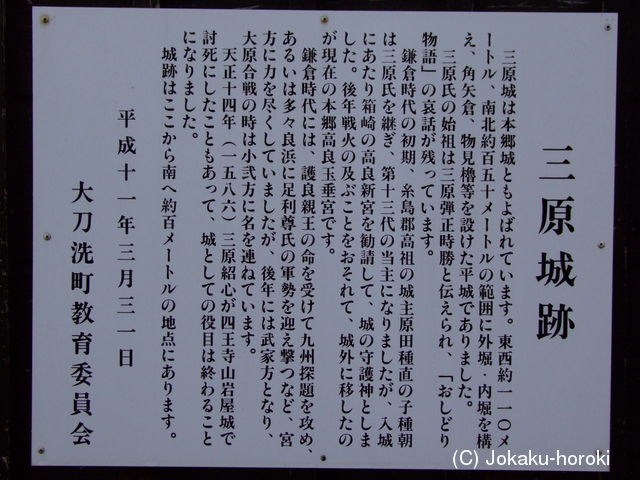 三原城跡
三原城は本郷城ともよばれています。東西約一一〇メ
ートル、南北約百五十メートルの範囲に外堀・内堀を構
え、角矢倉、物見櫓等を設けた平城でありました。
三原氏の始祖は三原弾正時勝と伝えられ、「おしどり
物語」の哀話が残っています。
鎌倉時代の初期、糸島郡高祖の城主原田種直の子種朝
は三原氏を継ぎ、第十三代の当主になりましたが、入城
にあたり箱崎の高良新宮を勧請して、城の守護神としま
した。後年戦火の及ぶことをおそれて、城外に移したの
が現在の本郷高良玉垂宮です。
鎌倉時代には、護良親王の命を受けて九州探題を攻め、
あるいは多々良浜に足利尊氏の軍勢を迎え撃つなど、宮
方に力を尽くしていましたが、後年には武家方となり、
大原合戦の時は小弐方に名を連ねています。
天正十四年（一五八六）三原紹心が四王寺山岩屋城で
討死にしたこともあって、城としての役目は終わること
になりました。
城跡はここから南へ約百メートルの地点にあります。
平成十一年三月三一日
大刀洗町教育委員会
(C) Jokaku-horoki